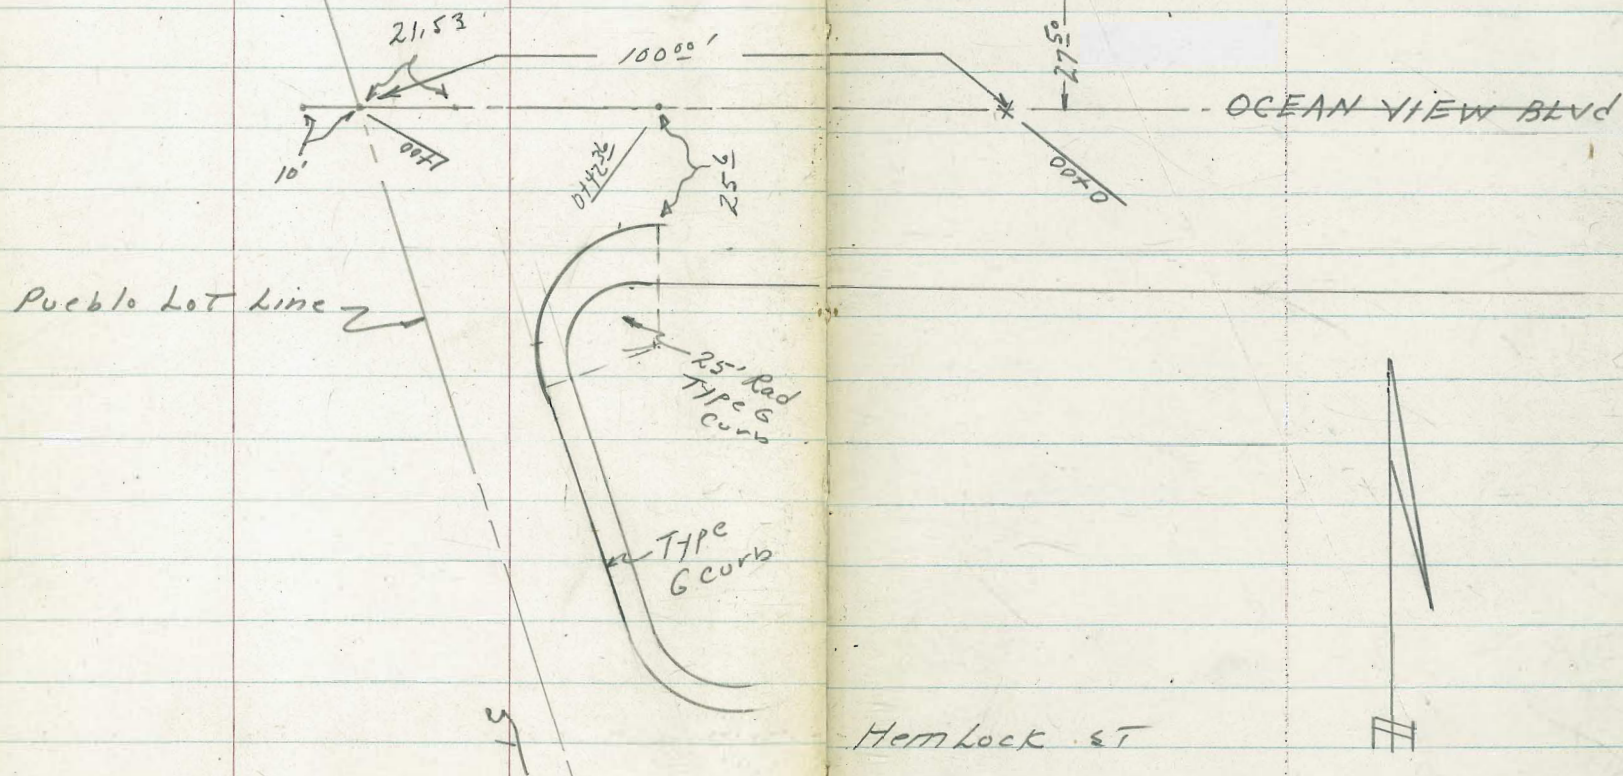 21.53'
100 00'
27 50
OCEAN VIEW BLVd
10'
1+00
0+42 36
25 6
0+00
Pueblo LoT Line
25' Rad
TYPe G
Curb
TYPe
G Curb
HemLock ST